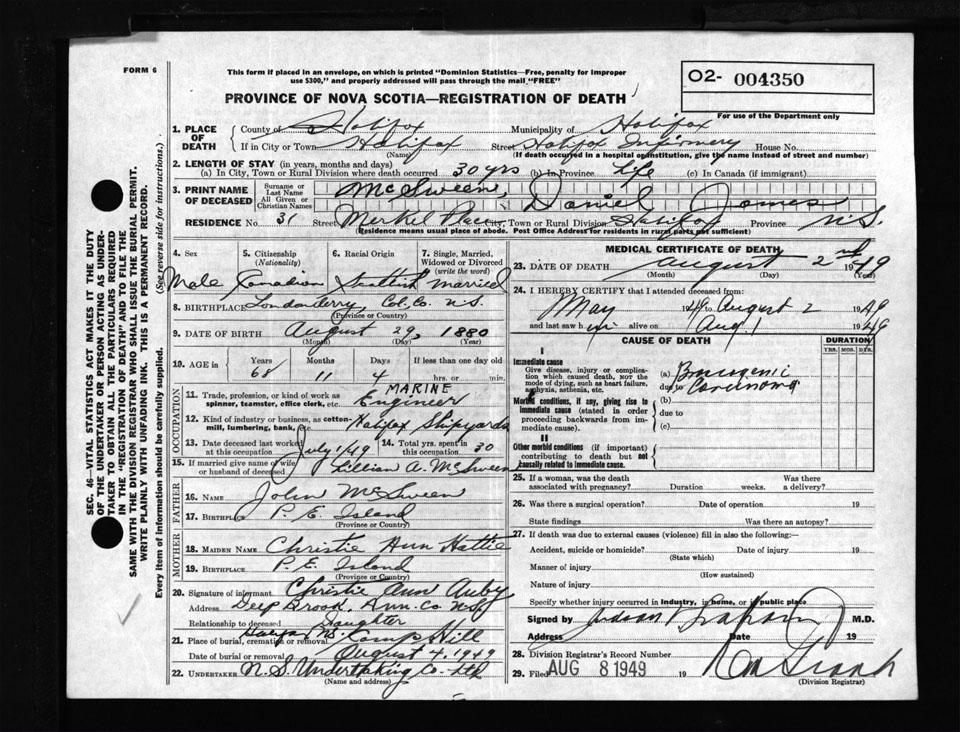 FORM 6
This form if placed in an envelope, on which is printed "Dominion Statistics—Free, penalty for improper
use $300," and properly addressed will pass through the mail "FREE"
O2- 004350
For use of the Department only
PROVINCE OF NOVA SCOTIA—REGISTRATION OF DEATH
1. PLACE OF DEATH County of Halifax Municipality of Halifax
If in City or Town Halifax Street Halifax Infirmery House No.
(Name) (If death occurred in a hospital or institution, give the name instead of street and number)
2. LENGTH OF STAY (in years, months and days)
(a) In City, Town or Rural Division where death occurred 30 yrs (b) In Province life (c) In Canada (if immigrant)
3. PRINT NAME OF DECEASED Surname or Last Name McSween, All Given or Christian Names Daniel James
RESIDENCE No. 31 Street Merkel Place City, Town or Rural Division Halifax Province N.S.
(Residence means usual place of abode. Post Office Address for residents in rural parts not sufficient)
4. Sex 5. Citizenship (Nationality) 6. Racial Origin 7. Single, Married, Widowed or Divorced (write the word)
Male Canadian Scottish married
8. BIRTHPLACE Londonderry Col. Co. N.S.
(Province or Country)
9. DATE OF BIRTH August 29, 1880
(Month) (Day) (Year)
10. AGE in Years Months Days If less than one day old
68 11 4 hrs. or min.
OCCUPATION
11. Trade, profession, or kind of work as spinner, teamster, office clerk, etc. MARINE Engineer
12. Kind of industry or business, as cotton-mill, lumbering, bank, etc. Halifax Shipyards
13. Date deceased last worked at this occupation July 1/49 14. Total yrs. spent in this occupation 30
15. If married give name of wife or husband of deceased Lillian A. McSween
FATHER
16. NAME John McSween
17. BIRTHPLACE P. E. Island
(Province or Country)
MOTHER
18. MAIDEN NAME Christie Ann Hattie
19. BIRTHPLACE P. E. Island
(Province or Country)
20. Signature of informant Christie Ann
Address Deep Brook, Ann. Co. N.S.
Relationship to deceased Daughter
21. Place of burial, cremation or removal Halifax N.S. Camp Hill
Date of burial or removal August 4, 1949
22. UNDERTAKER N. S. Undertaking Co. Ltd
(Name and address)
MEDICAL CERTIFICATE OF DEATH
23. DATE OF DEATH August 2nd 1949
(Month) (Day) (Year)
24. I HEREBY CERTIFY that I attended deceased from:
May 1949 to August 2 1949
and last saw him alive on Aug. 1 1949
CAUSE OF DEATH DURATION
YRS. MOS. DYS.
I
Immediate cause
Give disease, injury or complication which caused death, NOT the mode of dying, such as heart failure, asphyxia, asthenia, etc.
(a) Broncogenic
due to Carcinoma
Morbid conditions, if any, giving rise to immediate cause (stated in order proceeding backwards from immediate cause).
(b)
due to
(c)
II
Other morbid conditions (if important) contributing to death but not causally related to immediate cause.
25. If a woman, was the death associated with pregnancy? Duration weeks. Was there a delivery?
26. Was there a surgical operation? Date of operation 19
State findings Was there an autopsy?
27. If death was due to external causes (violence) fill in also the following:
Accident, suicide or homicide? Date of injury 19
(State which)
Manner of injury
(How sustained)
Nature of injury
Specify whether injury occurred in industry, in home, or in public place
Signed by M.D.
Address Date 19
28. Division Registrar's Record Number
29. Filed AUG 8 1949 19
(Division Registrar)
SEC. 46—VITAL STATISTICS ACT MAKES IT THE DUTY
OF THE UNDERTAKER OR PERSON ACTING AS UNDERTAKER
TO OBTAIN ALL THE PARTICULARS REQUIRED
IN THE "REGISTRATION OF DEATH" AND TO FILE THE
SAME WITH THE DIVISION REGISTRAR WHO SHALL ISSUE THE BURIAL PERMIT.
WRITE PLAINLY WITH UNFADING INK. THIS IS A PERMANENT RECORD.
Every item of information should be carefully supplied. (See reverse side for instructions.)